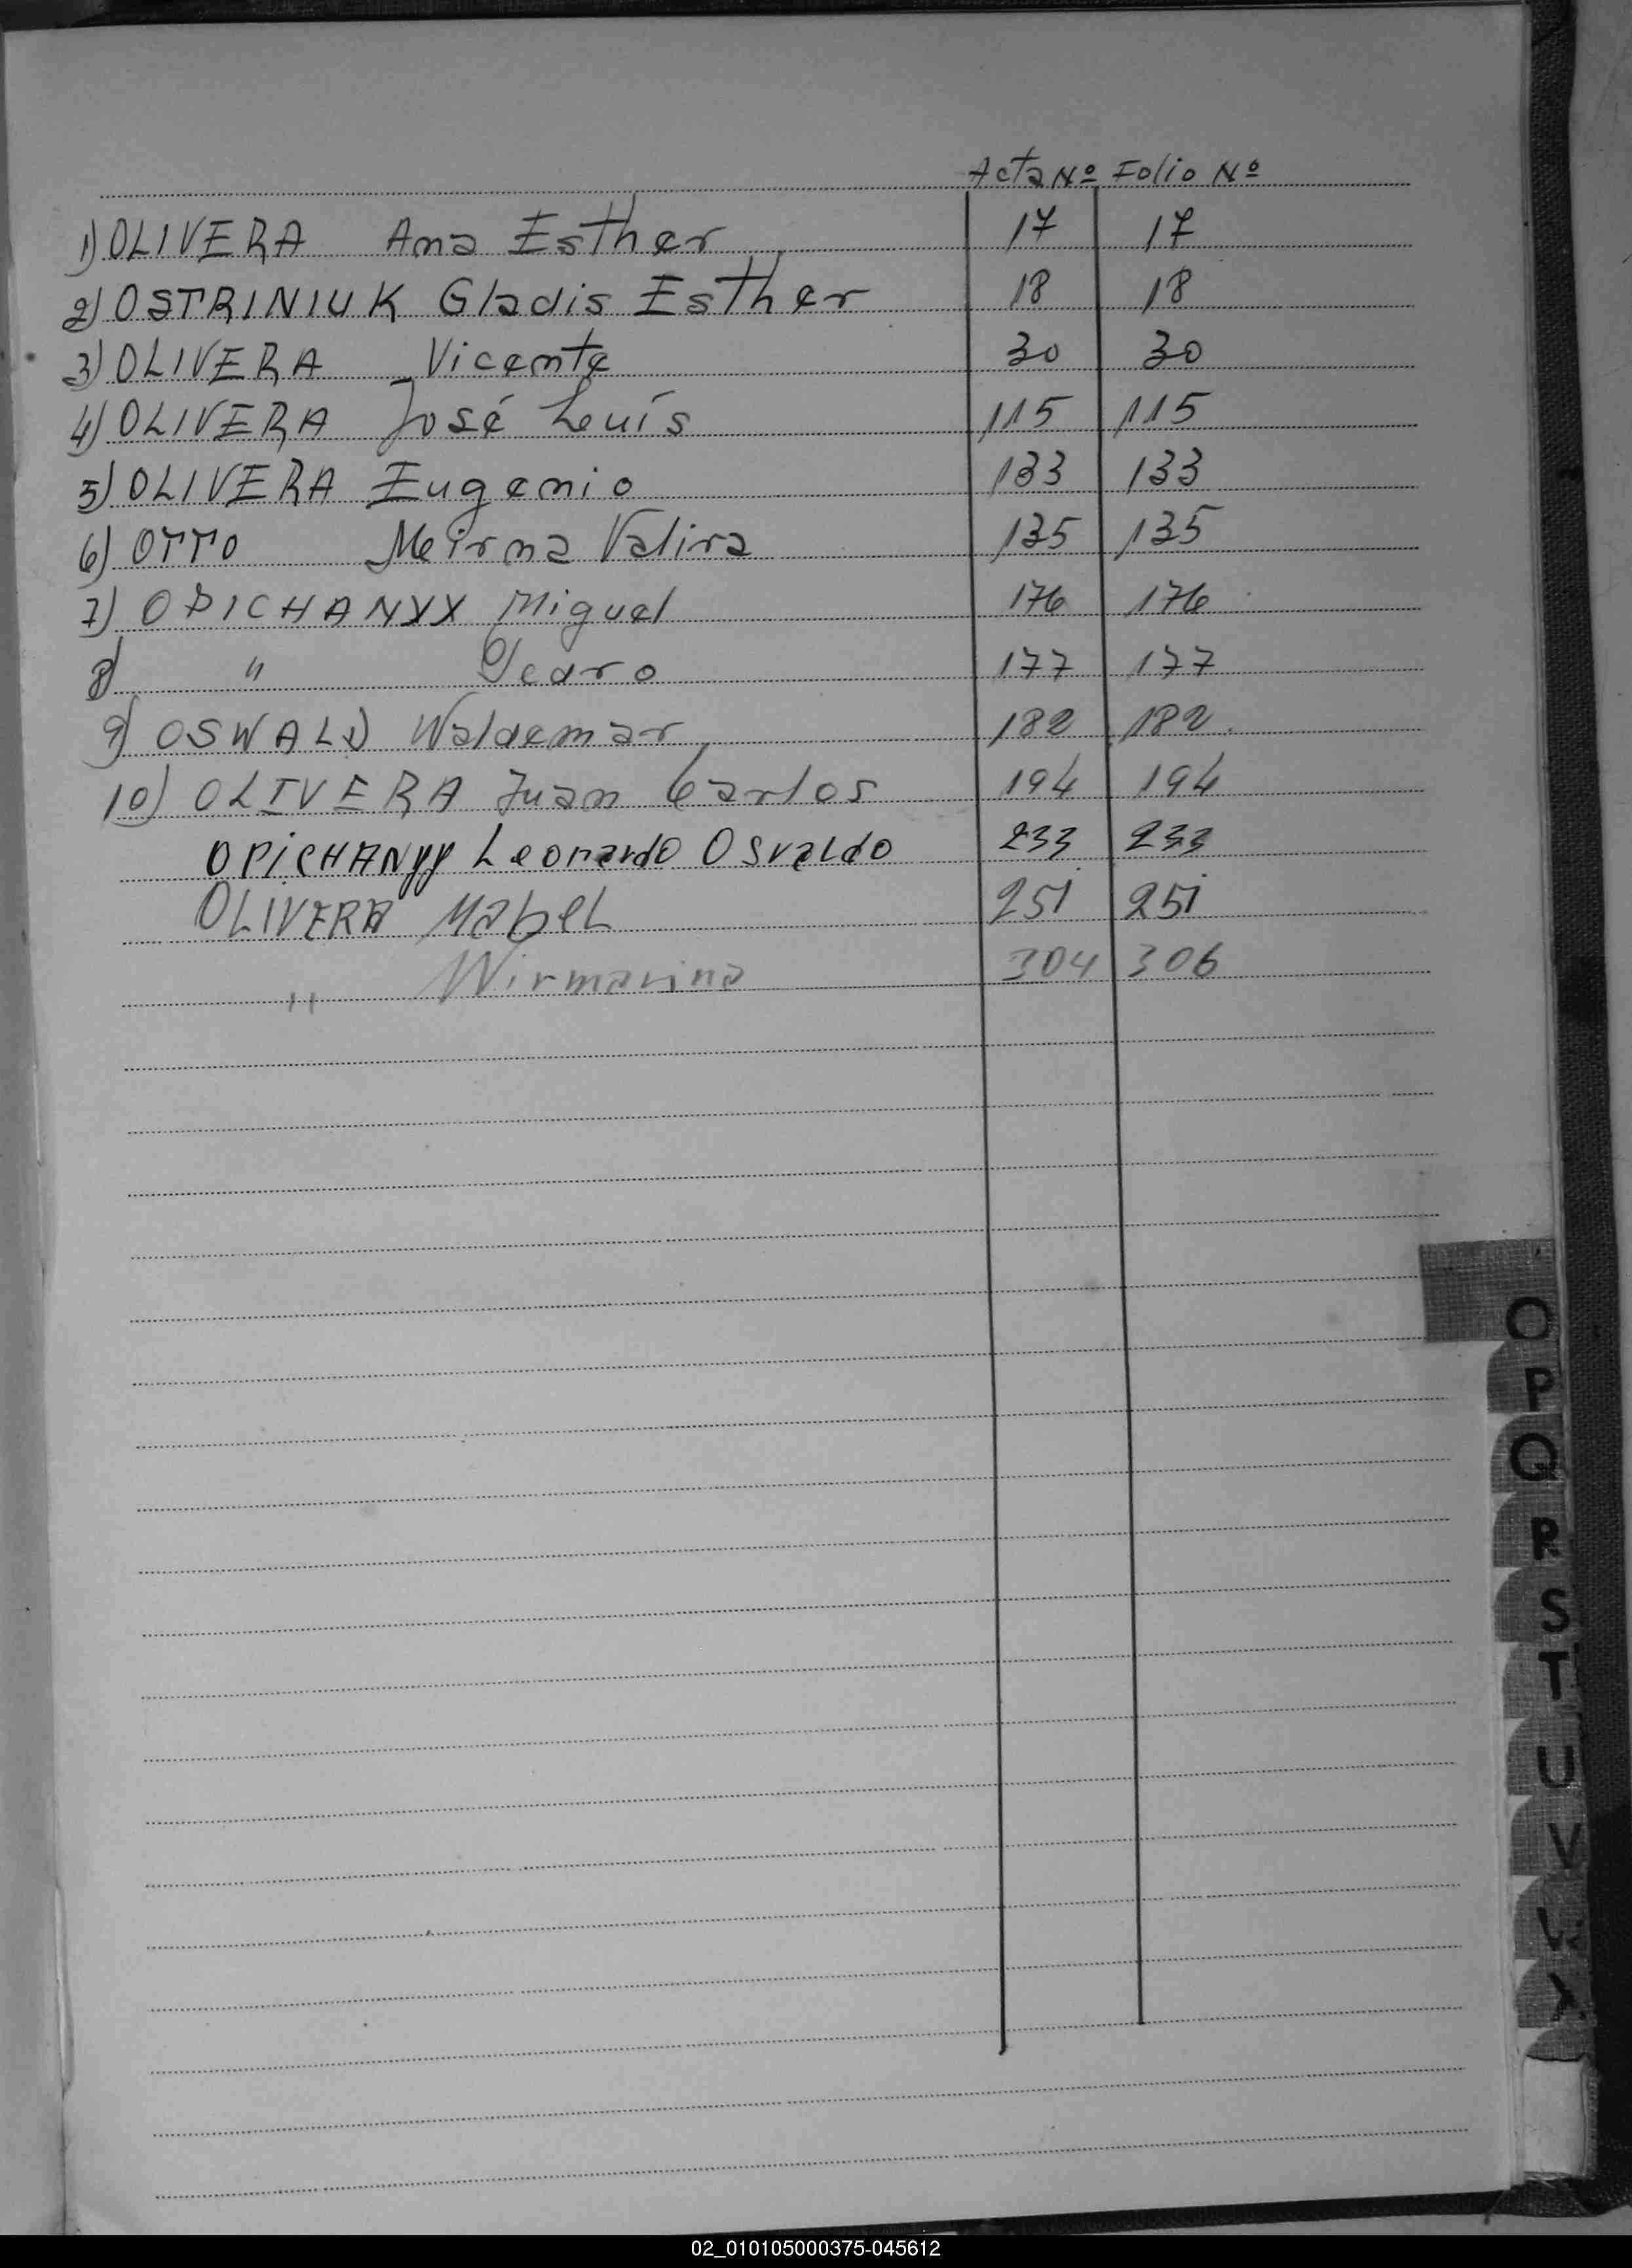 Acta Nº Folio Nº
1) OLIVERA Ana Esther 17 17
2) OSTRINIUK Gladis Esther 18 18
3) OLIVERA Vicente 30 30
4) OLIVERA José Luís 115 115
5) OLIVERA Eugenio 133 133
6) OTTO Meirma Valira 135 135
7) OPICHANYY Miguel 176 176
8) " Pedro 177 177
9) OSWALD Waldemar 182 182
10) OLIVERA Juan Carlos 194 194
OPICHANYY Leonardo Osvaldo 233 233
OLIVERA Mabel 251 251
" Wirmarina 304 306
O
P
Q
R
S
T
U
V
W
X
02_010105000375-045612